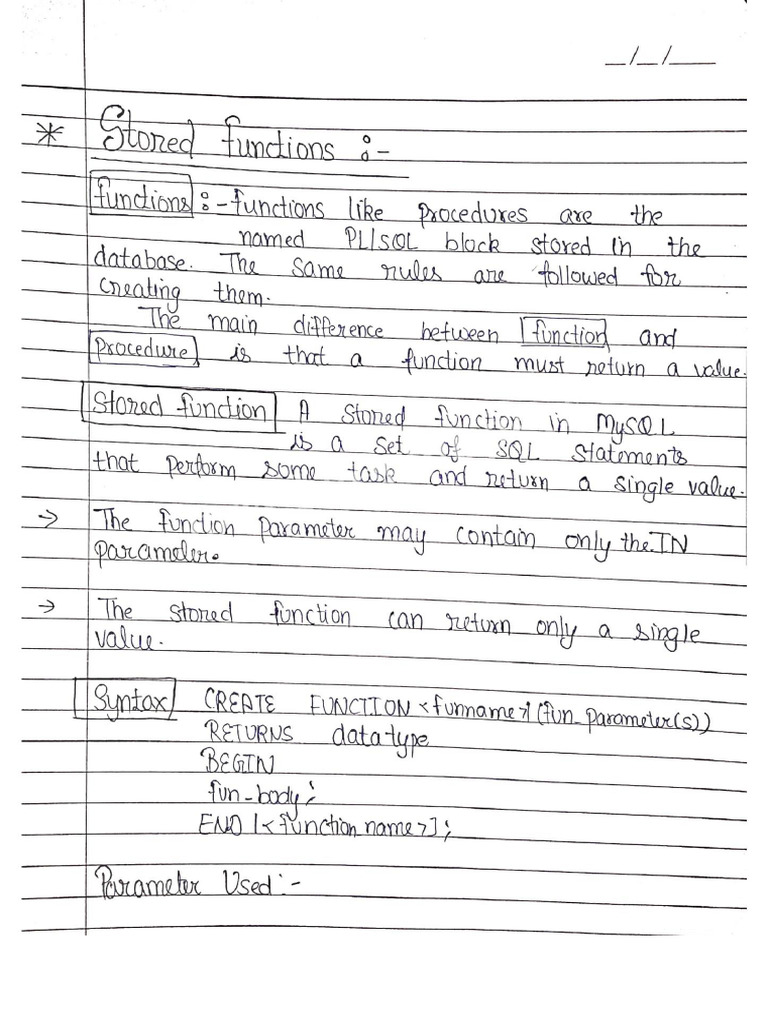 _/_/__
* Stored functions :-
functions :- functions like procedures are the
named PL/SQL block stored in the
database. The same rules are followed for
creating them.
The main difference between function and
Procedure is that a function must return a value.
Stored function A stored function in MySQL
is a set of SQL statements
that perform some task and return a single value.
→ The function parameter may contain only the IN
parameter.
→ The stored function can return only a single
value.
Syntax CREATE FUNCTION <funname>(fun_parameter(s))
RETURNS datatype
BEGIN
fun_body;
END [<function name>];
Parameter Used :-